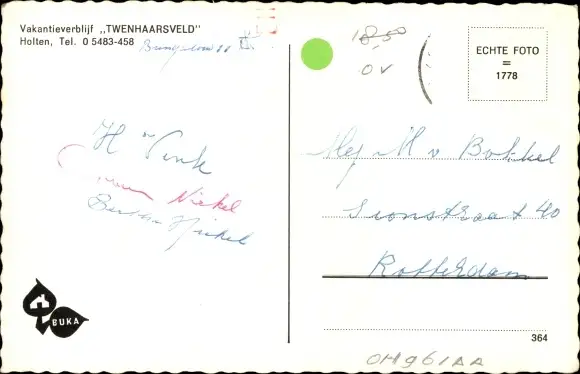 Vakantieverblijf „TWENHAARSVELD"
Holten, Tel. 0 5483-458
Bungalow 11
H Vink
Nickel
Bertha Nickel
BUKA
18,50
OV
ECHTE FOTO
=
1778
Mej M v Bokkel
Sionstraat 40
Rotterdam
364
OH961AA